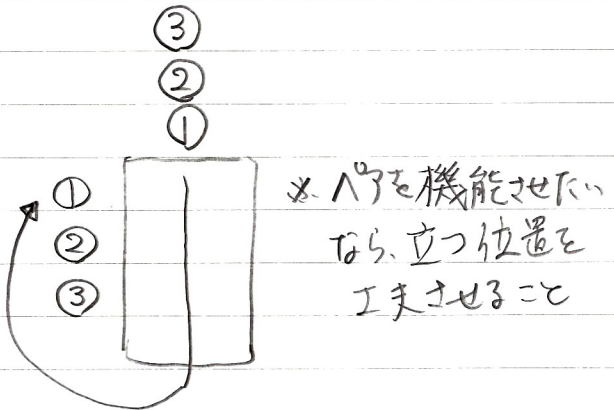 ③
②
①
①
②
③
※ ペアを機能させたい
なら、立つ位置を
工夫させること